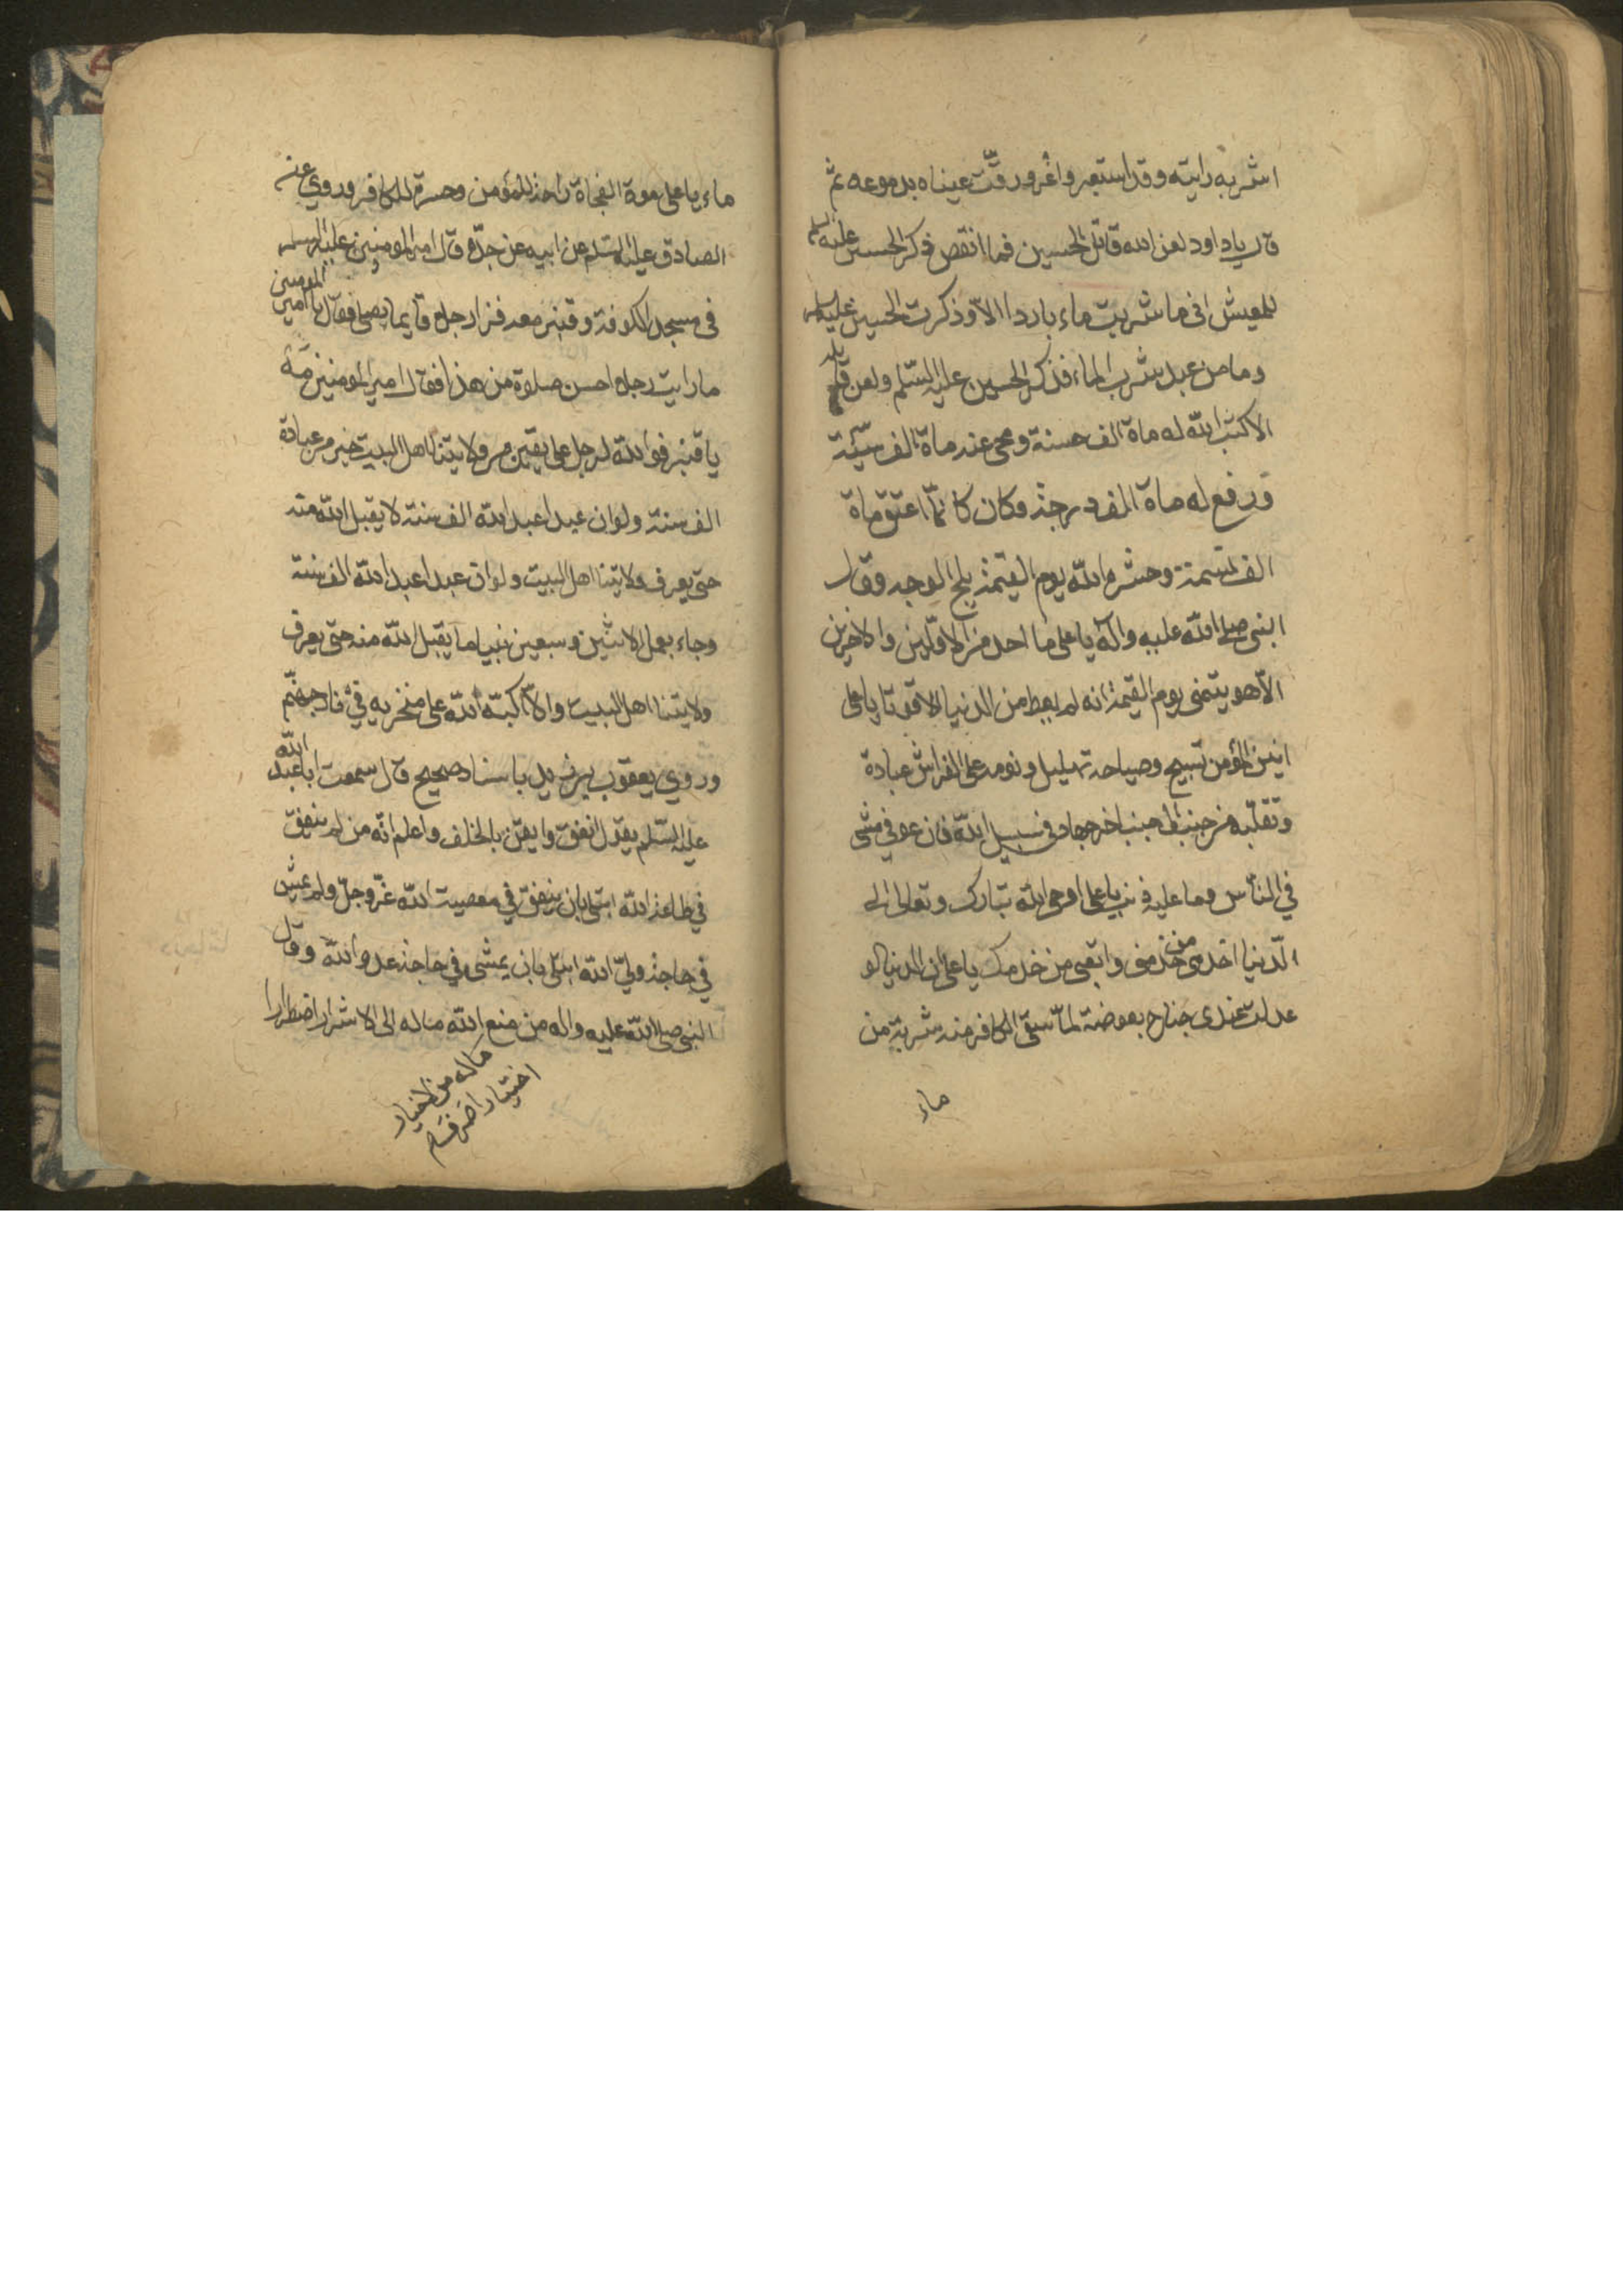 اشربه رايته وقد استعبر واغرورقت عيناه بدموعه ثم
قال ياداود لعن الله قاتل الحسين فما انقص ذكر الحسين عليه السلم
للعيش انى ما شربت ماء باردا الا وذكرت الحسين عليه السلم
وما من عبد شرب الماء فذكر الحسين عليه السلم ولعن قاتله
الا كتب الله له ماة الف حسنة ومحى عنه ماة الف سيئة
ورفع له ماة الف درجة وكان كانما اعتق ماة
الف نسمة وحشره الله يوم القيمة بلج الوجه وقال
النبى صلى الله عليه وآله ياعلى ما احد من الاولين والاخرين
الا هو يتمنى يوم القيمة انه لم يعط من الدنيا الا قوتا ياعلى
انين المؤمن تسبيح وصياحه تهليل ونومه على الفراش عبادة
وتقلبه من جنب الى جنب اخر جهاد فى سبيل الله فان عوفى مشى
في الناس وما عليه ذنب ياعلى اوحى الله تبارك وتعالى الى
الدنيا اخدمى من خدمنى واتعبى من خدمك ياعلى ان الدنيا لو
عدلت عندى جناح بعوضة لما سقى الكافر منه شربة من
ماء
ماء ياعلى موة الفجاة راحة للمؤمن وحسرة للكافر وروي عن
الصادق عليه السلم عن ابيه عن جده قال امير المومنين عليه السلم
فى مسجد الكوفة وقنبر معه فراى رجلا قايما يصلى فقال يا امير المومنين
ما رايت رجلا احسن صلوة من هذا فقال امير المومنين مه
يا قنبر فوالله لرجل على يقين من ولايتنا اهل البيت خير من عبادة
الف سنة ولو ان عبدا عبد الله الف سنة لا يقبل الله منه
حتى يعرف ولايتنا اهل البيت ولو ان عبدا عبد الله الف سنة
وجاء بعمل الاثنين وسبعين نبيا ما يقبل الله منه حتى يعرف
ولايتنا اهل البيت والا اكبه الله على منخريه في نار جهنم
وروي يعقوب بن يزيد باسناد صحيح قال سمعت ابا عبد الله
عليه السلم يقول انفق وايقن بالخلف واعلم انه من لم ينفق
في طاعة الله ابتلى بان ينفق في معصيت الله عز وجل ولم يمش
في حاجة ولي الله ابتلى بان يمشى في حاجة عدو الله وقال
النبى صلى الله عليه واله من منع الله ماله الى الاشرار اضطرارا
ماله من الاخيار
اختيارا صرف